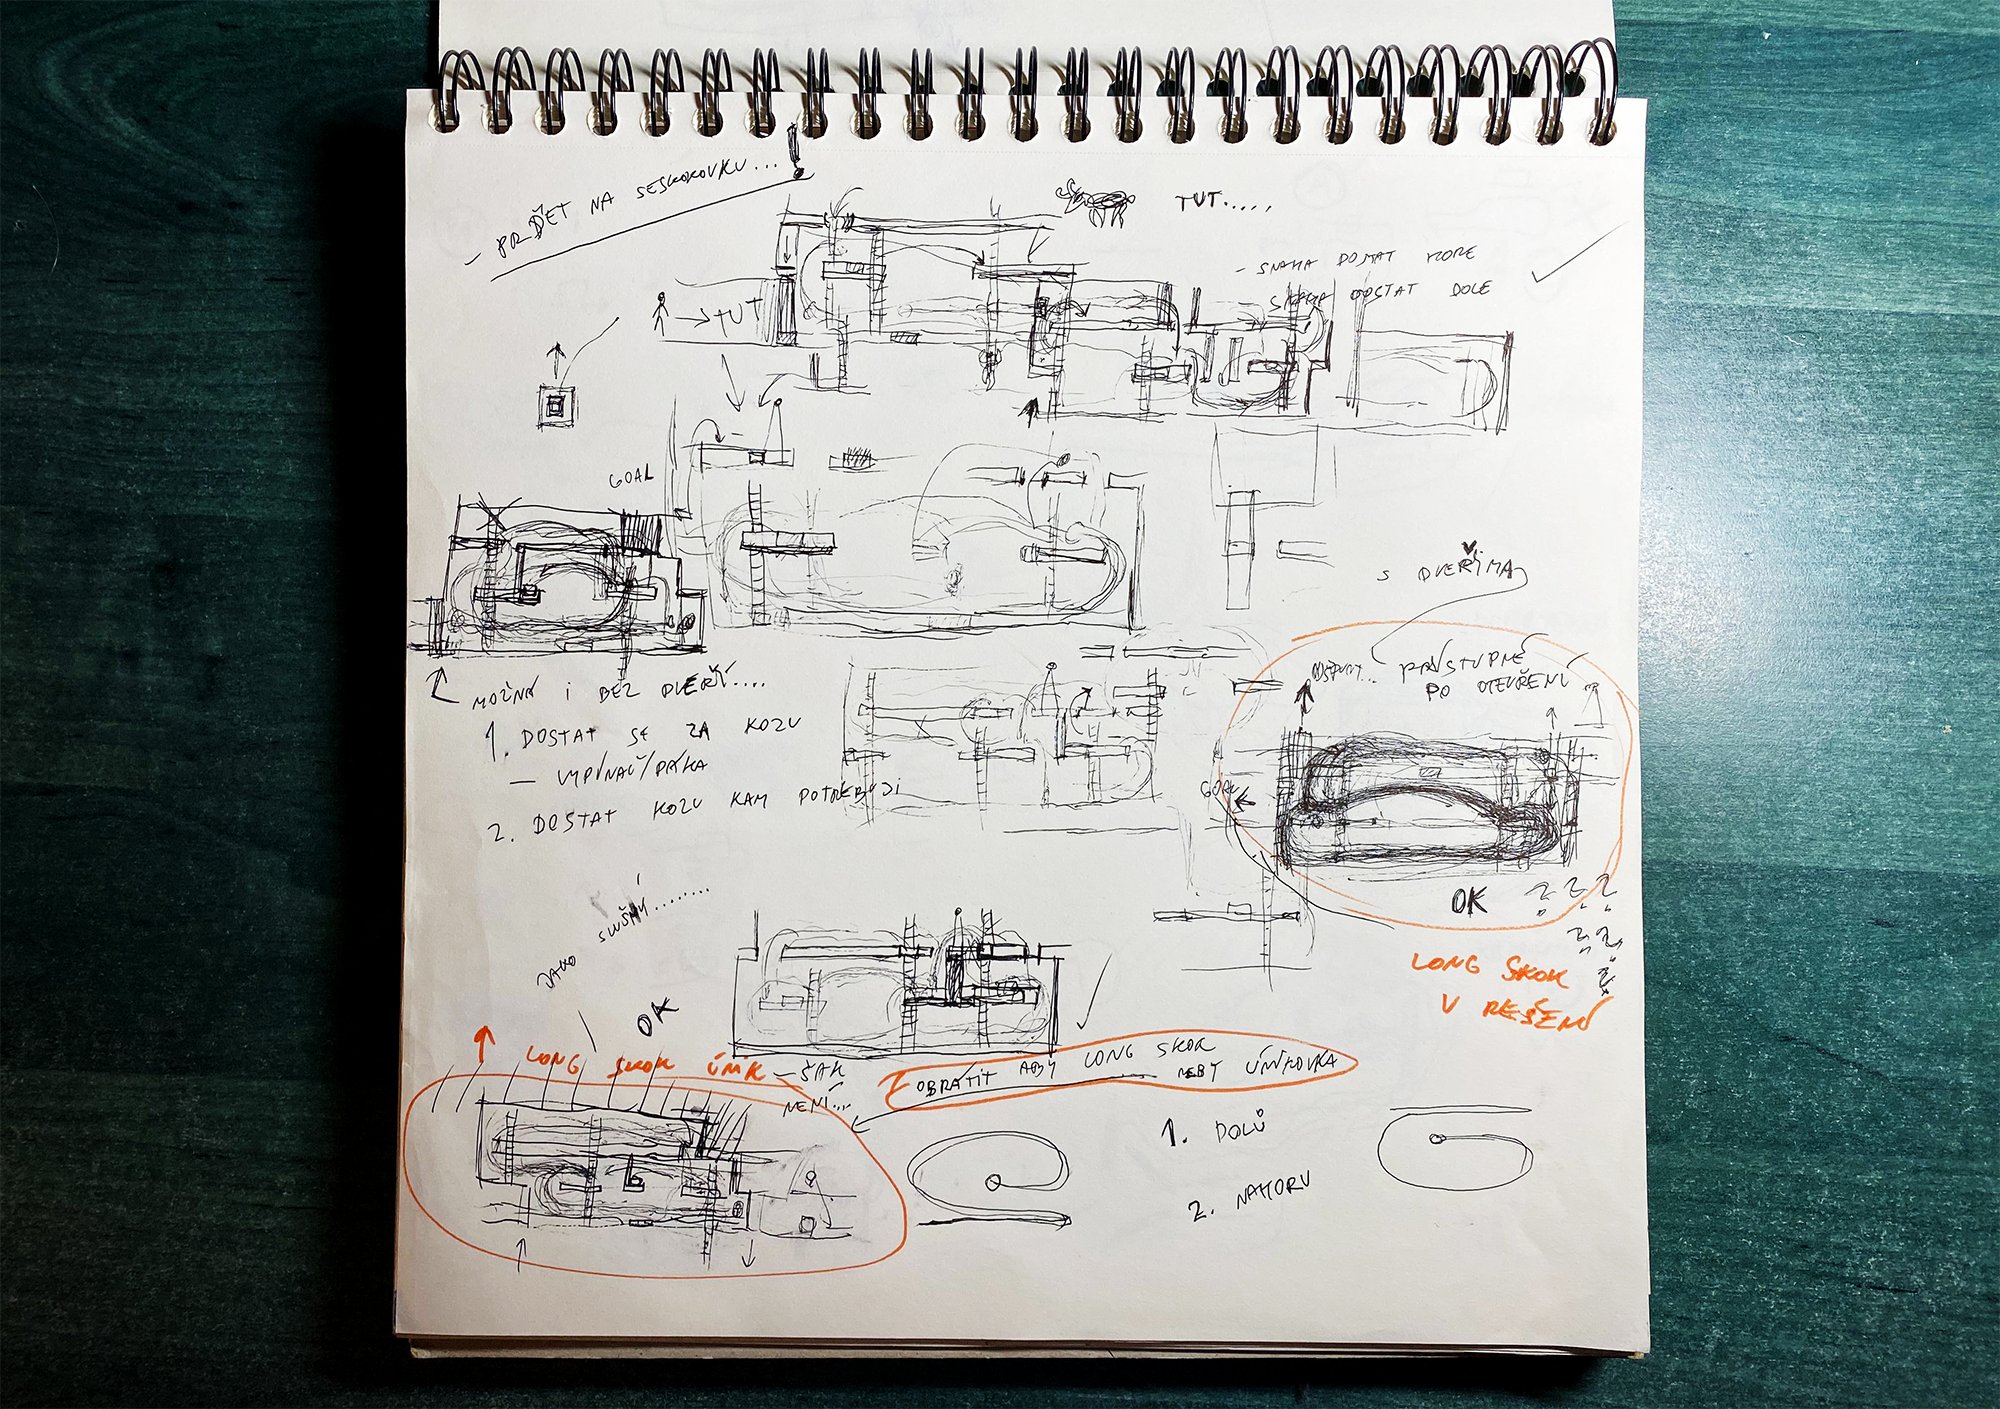 - PRDĚT NA SESKOKOVKU...!
TUT.....,
- SNAHA DOSTAT HORE
SNAHA DOSTAT DOLE
→ TUT
GOAL
S DVEŘIMA
PŘÍSTUPNÉ
PO OTEVŘENÍ
MOŽNÁ I BEZ DVEŘÍ....
1. DOSTAT SE ZA KOZU
- VYPÍNAČ/PÁKA
2. DOSTAT KOZU KAM POTŘEBUJI
GOAL
OK
LONG SKOK
V ŘEŠENÍ
JAKO
OK
LONG SKOK ÚNIK - ŠAK
NENÍ...
OBRÁTIT ABY LONG SKOK
NEBY ÚNIKOVKA
1. DOLŮ
2. NAHORU